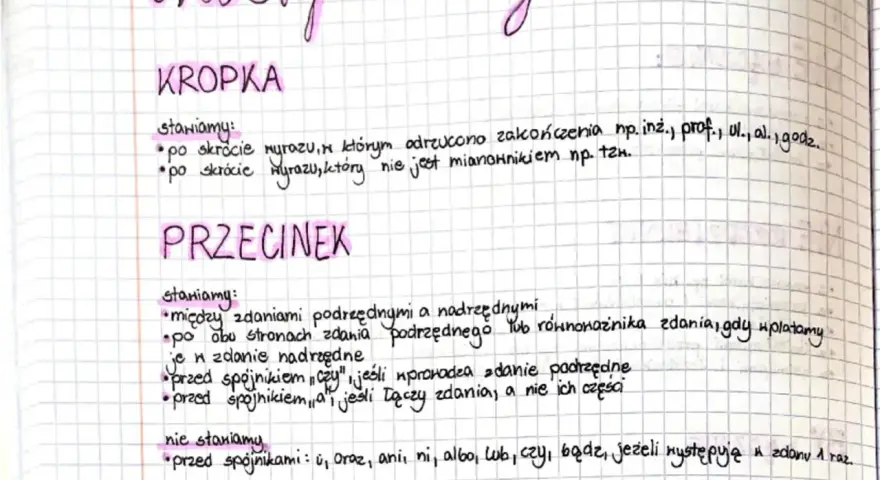 KROPKA
stawiamy:
• po skrócie wyrazu, w którym odrzucono zakończenia np. inż., prof., ul., al., godz.
• po skrócie wyrazu, który nie jest mianownikiem np. tzw.
PRZECINEK
stawiamy:
• między zdaniami podrzędnymi a nadrzędnymi
• po obu stronach zdania podrzędnego lub równoważnika zdania, gdy wplatamy
je w zdanie nadrzędne
• przed spójnikiem „czy", jeśli wprowadza zdanie podrzędne
• przed spójnikiem „a", jeśli łączy zdania, a nie ich części
nie stawiamy
• przed spójnikami: i, oraz, ani, ni, albo, lub, czy, bądź, jeżeli występują w zdanu 1 raz.